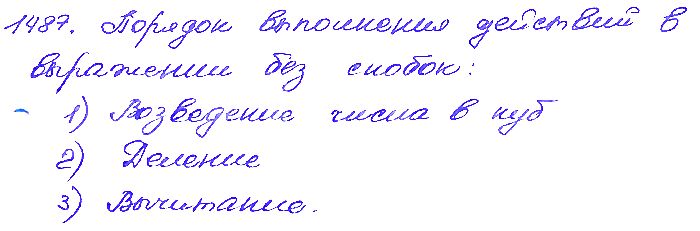 1487. Порядок выполнения действий в
выражении без скобок:
1) Возведение числа в куб
2) Деление
3) Вычитание.